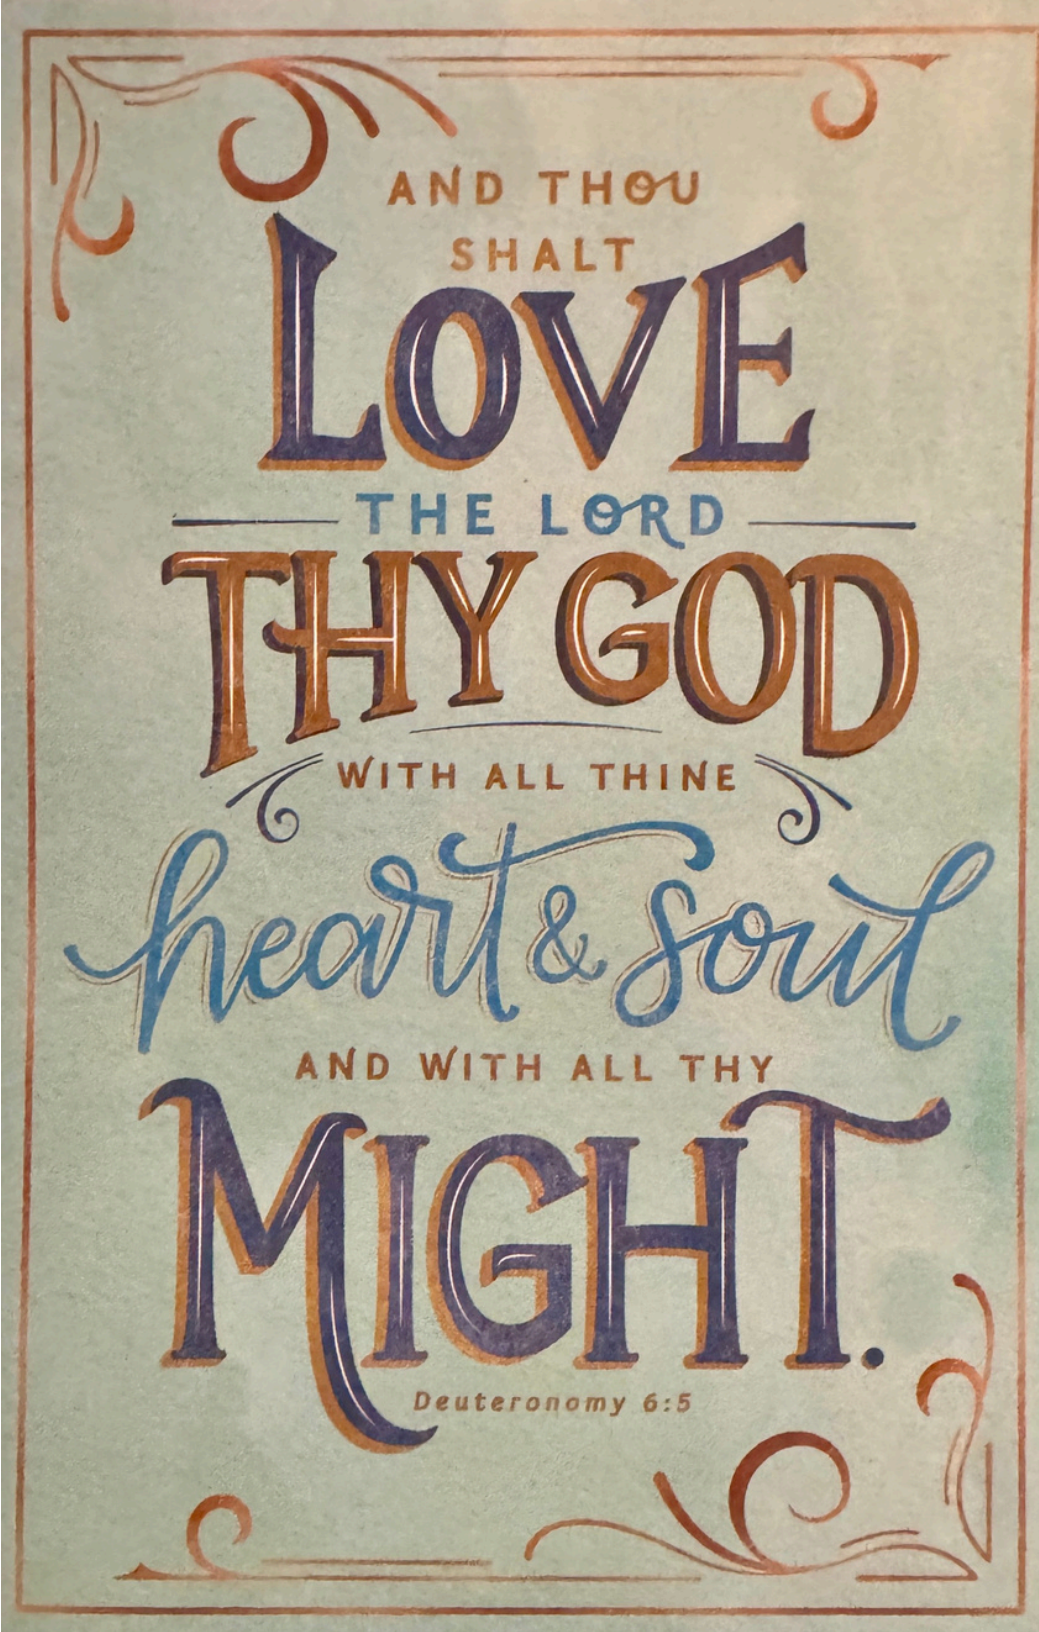 AND THOU
SHALT
LOVE
THE LORD
THY GOD
WITH ALL THINE
heart & soul
AND WITH ALL THY
MIGHT.
Deuteronomy 6:5